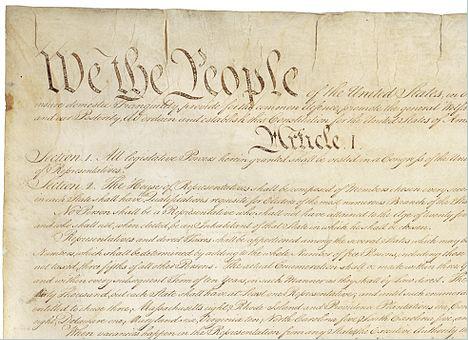 We the People of the United States, in O
insure domestic Tranquility, provide for the common defence, promote the general Welf
and our Posterity, do ordain and establish this Constitution for the United States of Ame
Article I.
Section. 1. All legislative Powers herein granted shall be vested in a Congress of the Unit
of Representatives.
Section. 2. The House of Representatives shall be composed of Members chosen every secon
in each State shall have Qualifications requisite for Electors of the most numerous Branch of the
No Person shall be a Representative who shall not have attained to the Age of twenty fiv
and who shall not, when elected, be an Inhabitant of that State in which he shall be chosen.
Representatives and direct Taxes shall be apportioned among the several States which may be
Numbers, which shall be determined by adding to the whole Number of free Persons, including those
not taxed, three fifths of all other Persons. The actual Enumeration shall be made within three y
and within every subsequent Term of ten Years, in such Manner as they shall by Law direct. The
thirty Thousand, but each State shall have at Least one Representative; and until such enumeratio
entitled to chuse three, Massachusetts eight, Rhode Island and Providence Plantations one, Con
eight, Delaware one, Maryland six, Virginia ten, North Carolina five, South Carolina five, an
When vacancies happen in the Representation from any State, the Executive Authority